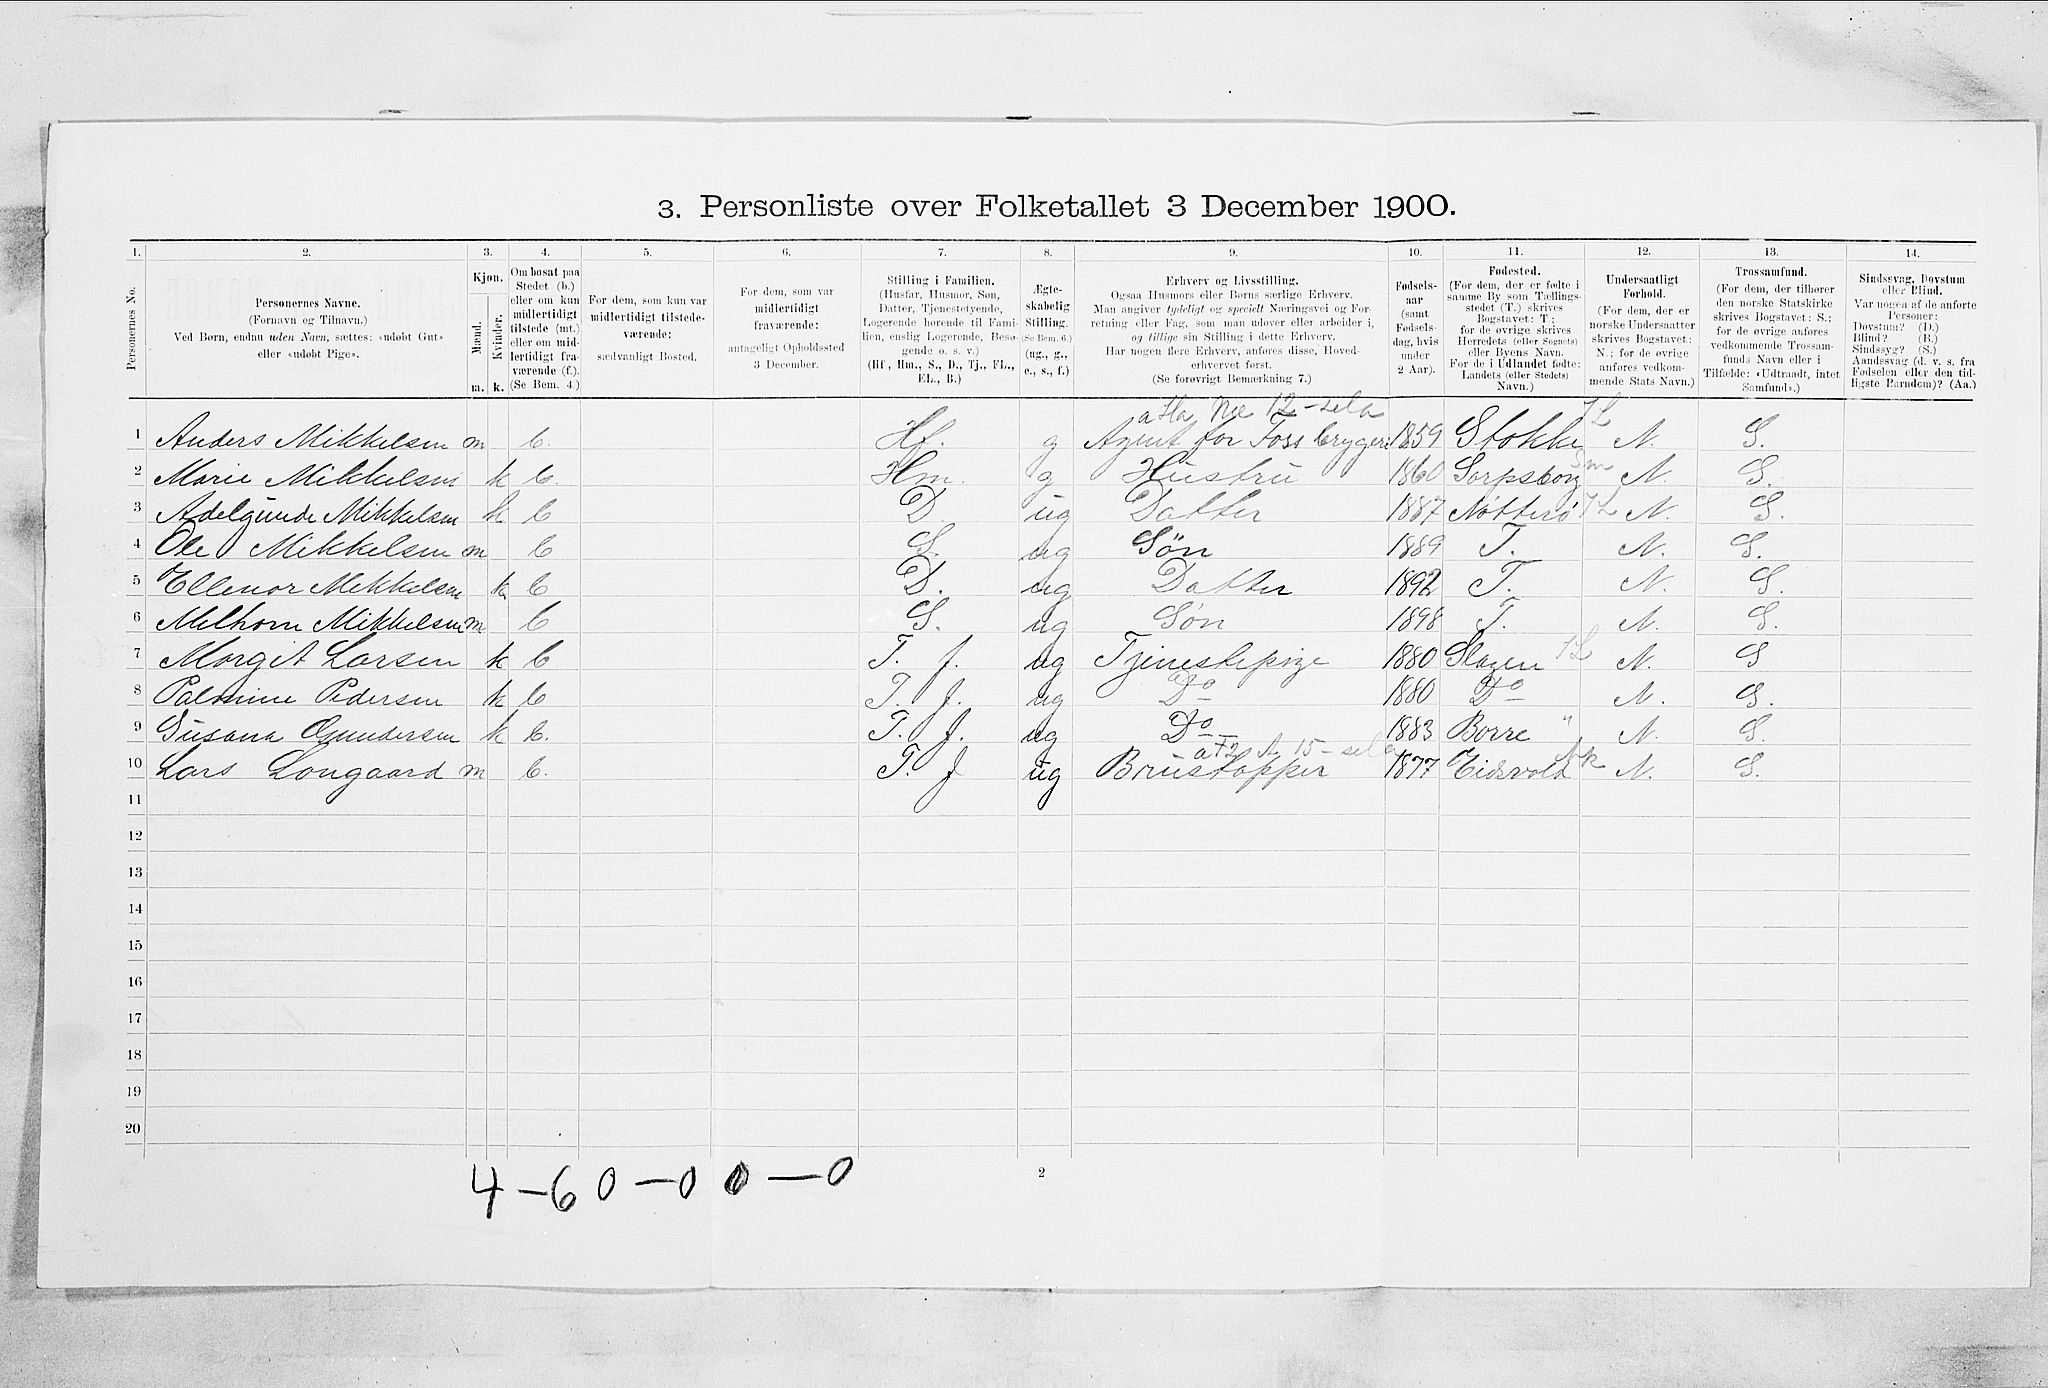 3. Personliste over Folketallet 3 December 1900.
1. 2. 3. 4. 5. 6. 7. 8. 9. 10. 11. 12. 13. 14.
Personernes No.
Personernes Navne.
(Fornavn og Tilnavn.)
Ved Børn, endnu uden Navn, sættes: «udøbt Gut»
eller «udøbt Pige».
Kjøn.
Mænd. Kvinder.
m. k.
Om bosat paa
Stedet (b.)
eller om kun
midlertidigt
tilstede (mt.)
eller om mid-
lertidigt fra-
værende (f.).
(Se Bem. 4.)
For dem, som kun var
midlertidigt tilstede-
værende:
sædvanligt Bosted.
For dem, som var
midlertidigt
fraværende:
antageligt Opholdssted
3 December.
Stilling i Familien.
(Husfar, Husmor, Søn,
Datter, Tjenestetyende,
Logerende hørende til Fami-
lien, enslig Logerende, Besø-
gende o. s. v.)
(Hf., Hm., S., D., Tj., FL.,
EL., B.)
Ægte-
skabelig
Stilling.
(Se Bem. 6.)
(ug., g.,
e., s., f.)
Erhverv og Livsstilling.
Ogsaa Husmors eller Børns særlige Erhverv.
Man angiver tydeligt og specielt Næringsvei og For-
retning eller Fag, som man udøver eller arbeider i,
og tillige sin Stilling i dette Erhverv.
Har nogen flere Erhverv, anføres disse, Hoved-
erhvervet først.
(Se forøvrigt Bemærkning 7.)
Fødsels-
aar
(samt
Fødsels-
dag, hvis
under
2 Aar).
Fødested.
(For dem, der er fødte i
samme By som Tællings-
stedet (T.) skrives
Bogstavet: T.;
for de øvrige skrives
Herredets (eller Sognets)
eller Byens Navn.
For de i Udlandet fødte:
Landets (eller Stedets)
Navn.)
Undersaatligt
Forhold.
(For dem, der er
norske Undersaatter
skrives Bogstavet:
N.; for de øvrige
anføres vedkom-
mende Stats Navn.)
Trossamfund.
(For dem, der tilhører
den norske Statskirke
skrives Bogstavet: S.;
for de øvrige anføres
vedkommende Trossam-
funds Navn eller i
Tilfælde: «Udtraadt, intet
Samfund».)
Sindssvag, Døvstum
eller Blind.
Var nogen af de anførte
Personer:
Døvstum? (D.)
Blind? (B.)
Sindssyg? (S.)
Aandssvag (d. v. s. fra
Fødselen eller den tid-
ligste Barndom)? (Aa.)
1 Anders Mikkelsen m b. Hf. g Agent for Foss brygeri 1859 Stokke N. S.
2 Marie Mikkelsen k b. Hm. g Hustru 1860 Sarpsborg Sm N. S.
3 Adelgunde Mikkelsen k b D ug Datter 1887 Nøtterø JL N. S.
4 Ole Mikkelsen m b S. ug Søn 1889 T. N. S.
5 Ellenor Mikkelsen k b D. ug Datter 1892 T. N. S.
6 Melhorn Mikkelsen m b S. ug Søn 1898 T. N. S.
7 Morgit Larsen k b T. f. ug Tjenestepige 1880 Slagen JL N. S
8 Palmine Pedersen k b T. f. ug Do 1880 Do N. S.
9 Susana Gundersen k b. T. f. ug Do 1883 Borre " N. S.
10 Lars Longaard m b. T. f ug Brustapper 1877 Eidsvold Ak N. S.
11
12
13
14
15
16
17
18
19
20
4 – 6 0 – 0 0 – 0
2